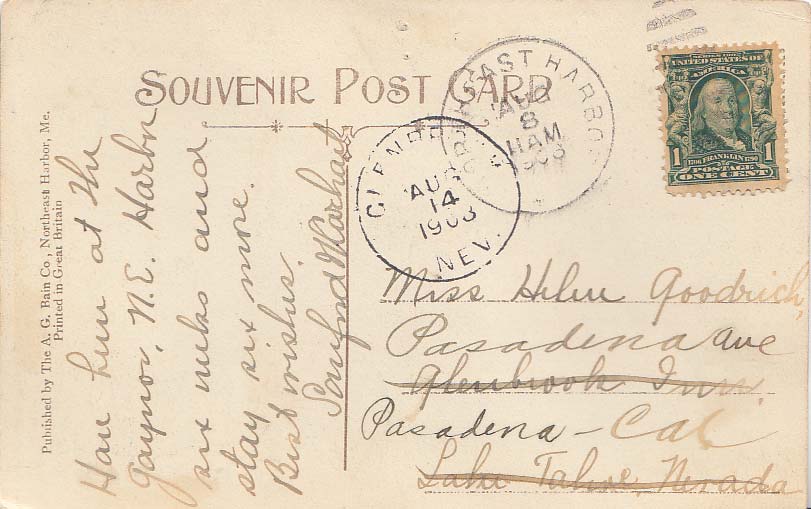 SOUVENIR POST CARD
Published by The A. G. Bain Co., Northeast Harbor, Me.
Printed in Great Britain
Have been at the
Gaynor, N.E. Harbor
six weeks and
stay six more.
Best wishes.
EAST HARBOR
AUG
8
11AM
1908
GLENBROOK
AUG
14
1908
NEV.
SERIES 1902
UNITED STATES OF
AMERICA
1 1706 FRANKLIN 1790 1
POSTAGE
ONE CENT
Miss Helen Goodrich,
Pasadena Ave
Glenbrook Inn.
Pasadena - Cal
Lake Tahoe, Nevada